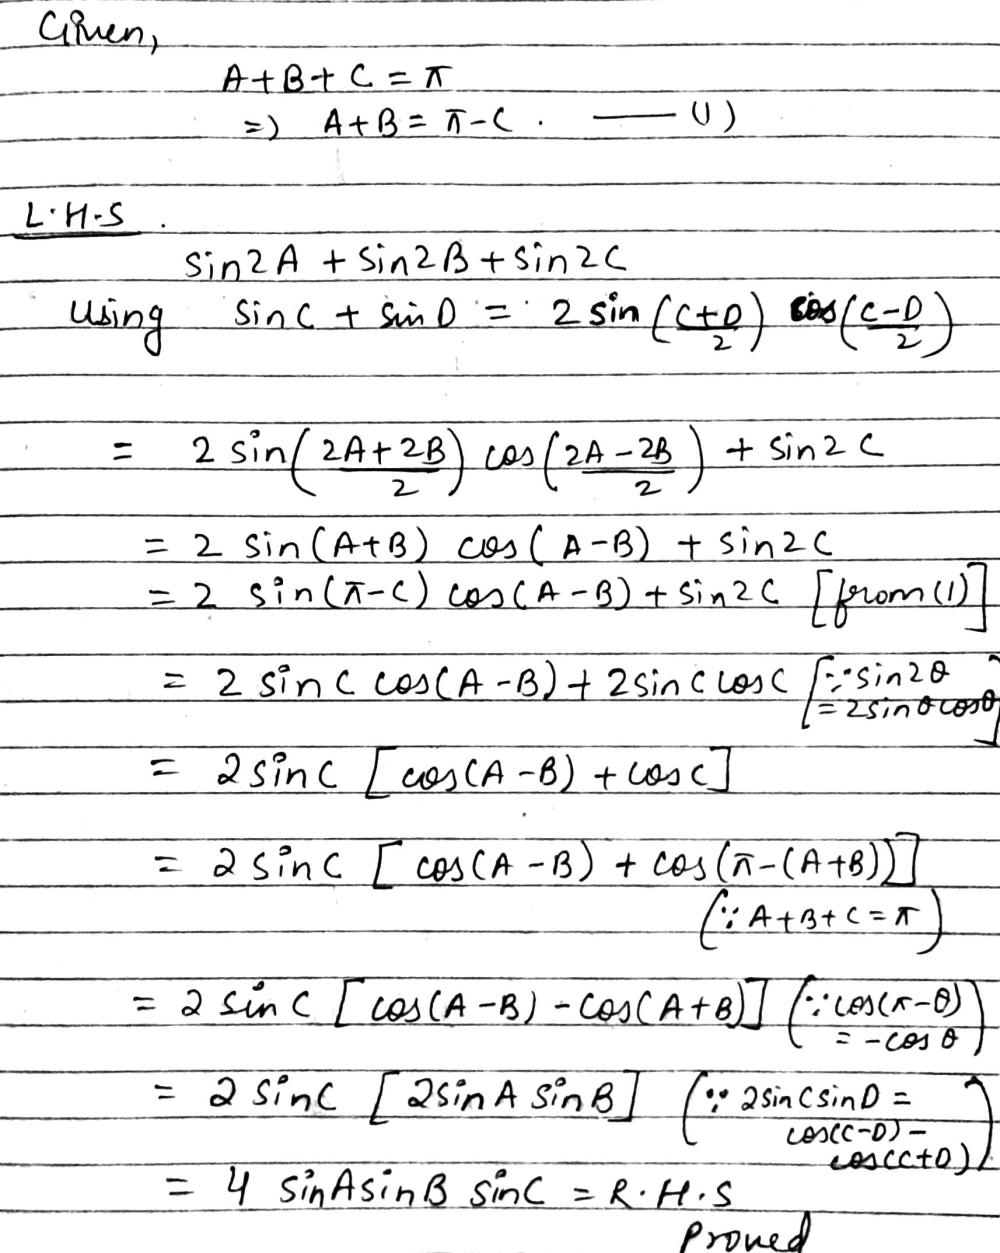 Given,
A+B+C = π
=) A+B = π-C. —— (1)
L.H.S.
Sin2A + Sin2B + Sin2C
Using Sin C + Sin D = 2 sin (C+D/2) cos (C-D/2)
= 2 sin (2A+2B/2) cos (2A-2B/2) + Sin2C
= 2 Sin(A+B) cos(A-B) + Sin2C
= 2 Sin(π-C) cos(A-B) + Sin2C [from (1)]
= 2 Sin C cos(A-B) + 2 Sin C cos C [∵ Sin2θ
= 2sinθcosθ]
= 2 Sin C [cos(A-B) + cos C]
= 2 Sin C [cos(A-B) + cos(π-(A+B))]
(∵ A+B+C = π)
= 2 Sin C [cos(A-B) - cos(A+B)] (∵ cos(π-θ)
= -cos θ)
= 2 Sin C [2sin A Sin B] (∵ 2sin C sin D =
cos(C-D) -
cos(C+D))
= 4 SinA sin B Sin C = R.H.S
Proved